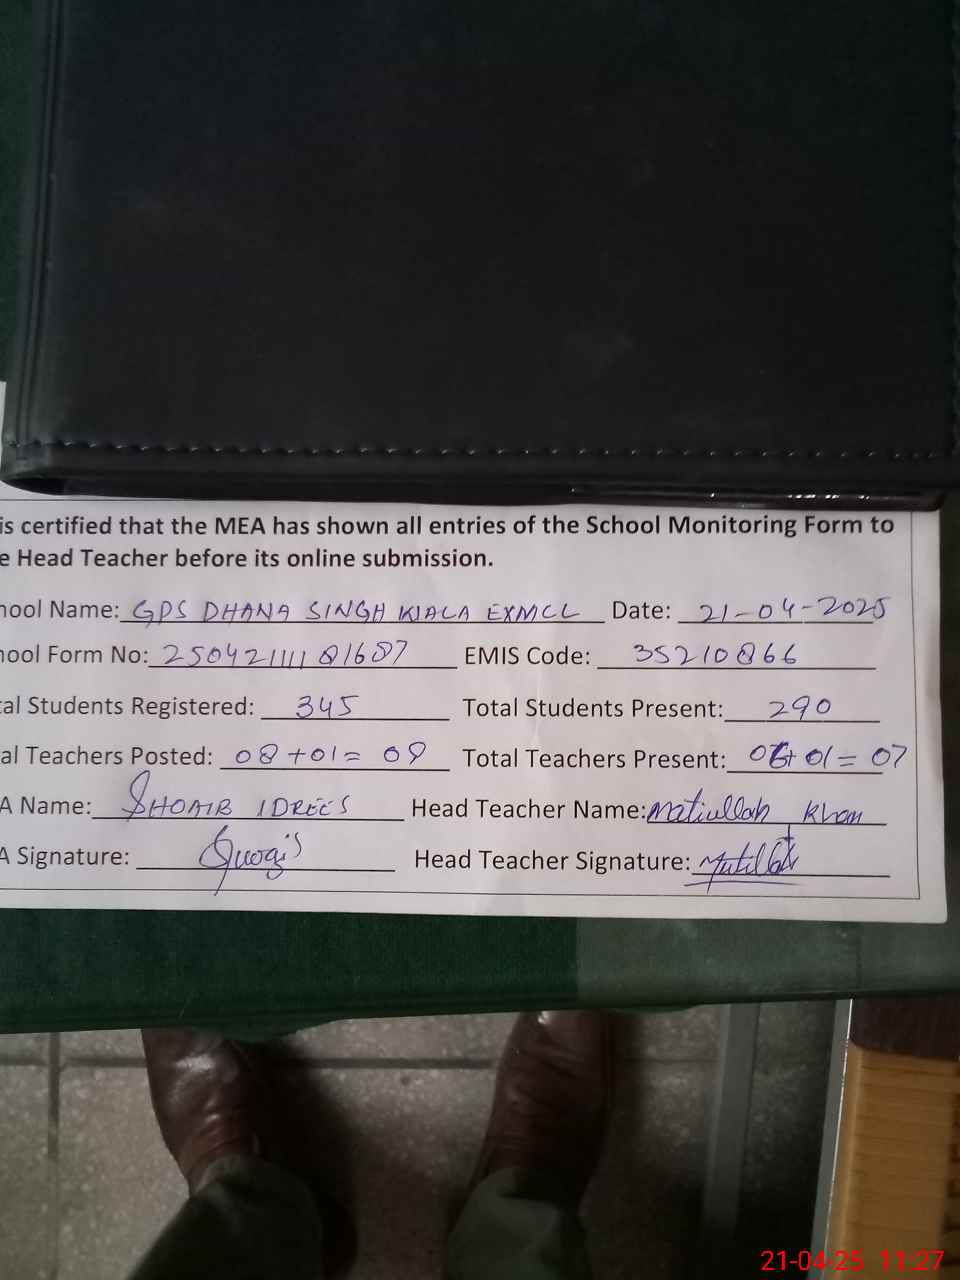 is certified that the MEA has shown all entries of the School Monitoring Form to
e Head Teacher before its online submission.
hool Name: GPS DHANA SINGH WALA EXMCL Date: 21-04-2025
hool Form No: 250421111181687 EMIS Code: 35210866
tal Students Registered: 345 Total Students Present: 290
al Teachers Posted: 08+01= 09 Total Teachers Present: 06+01=07
A Name: SHOAIB IDREES Head Teacher Name: Matiullah Khan
A Signature: Head Teacher Signature:
21-04-25 11:27